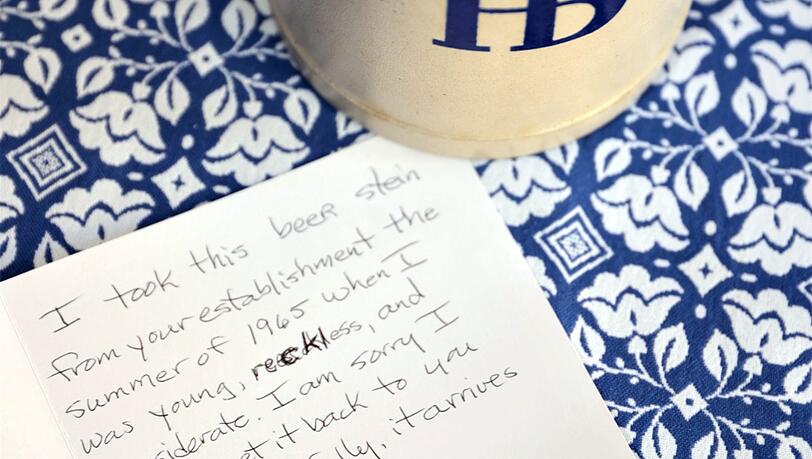 HB
I took this beer stein
from your establishment the
summer of 1965 when I
was young, reckless, and
siderate. I am sorry I
et it back to you
lly, it arrives